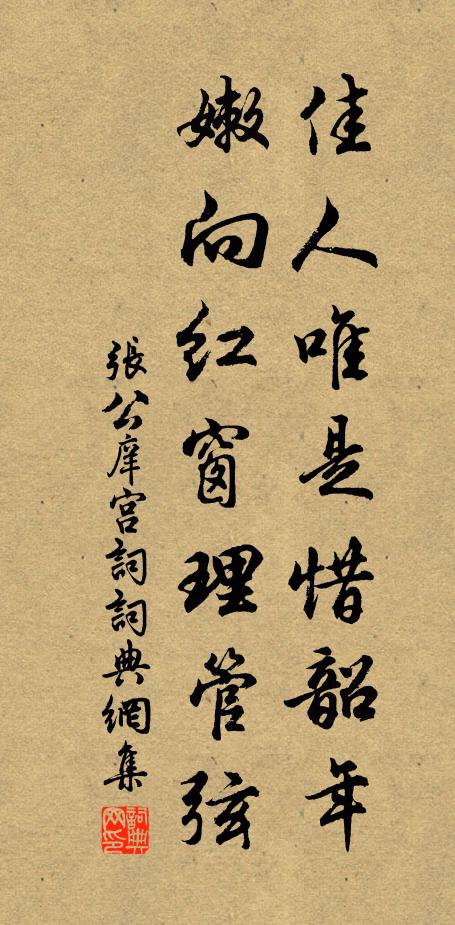 佳人唯是惜韶年
嫩向紅窗理管弦
張公庠宮詞詞典網集
詞典网印